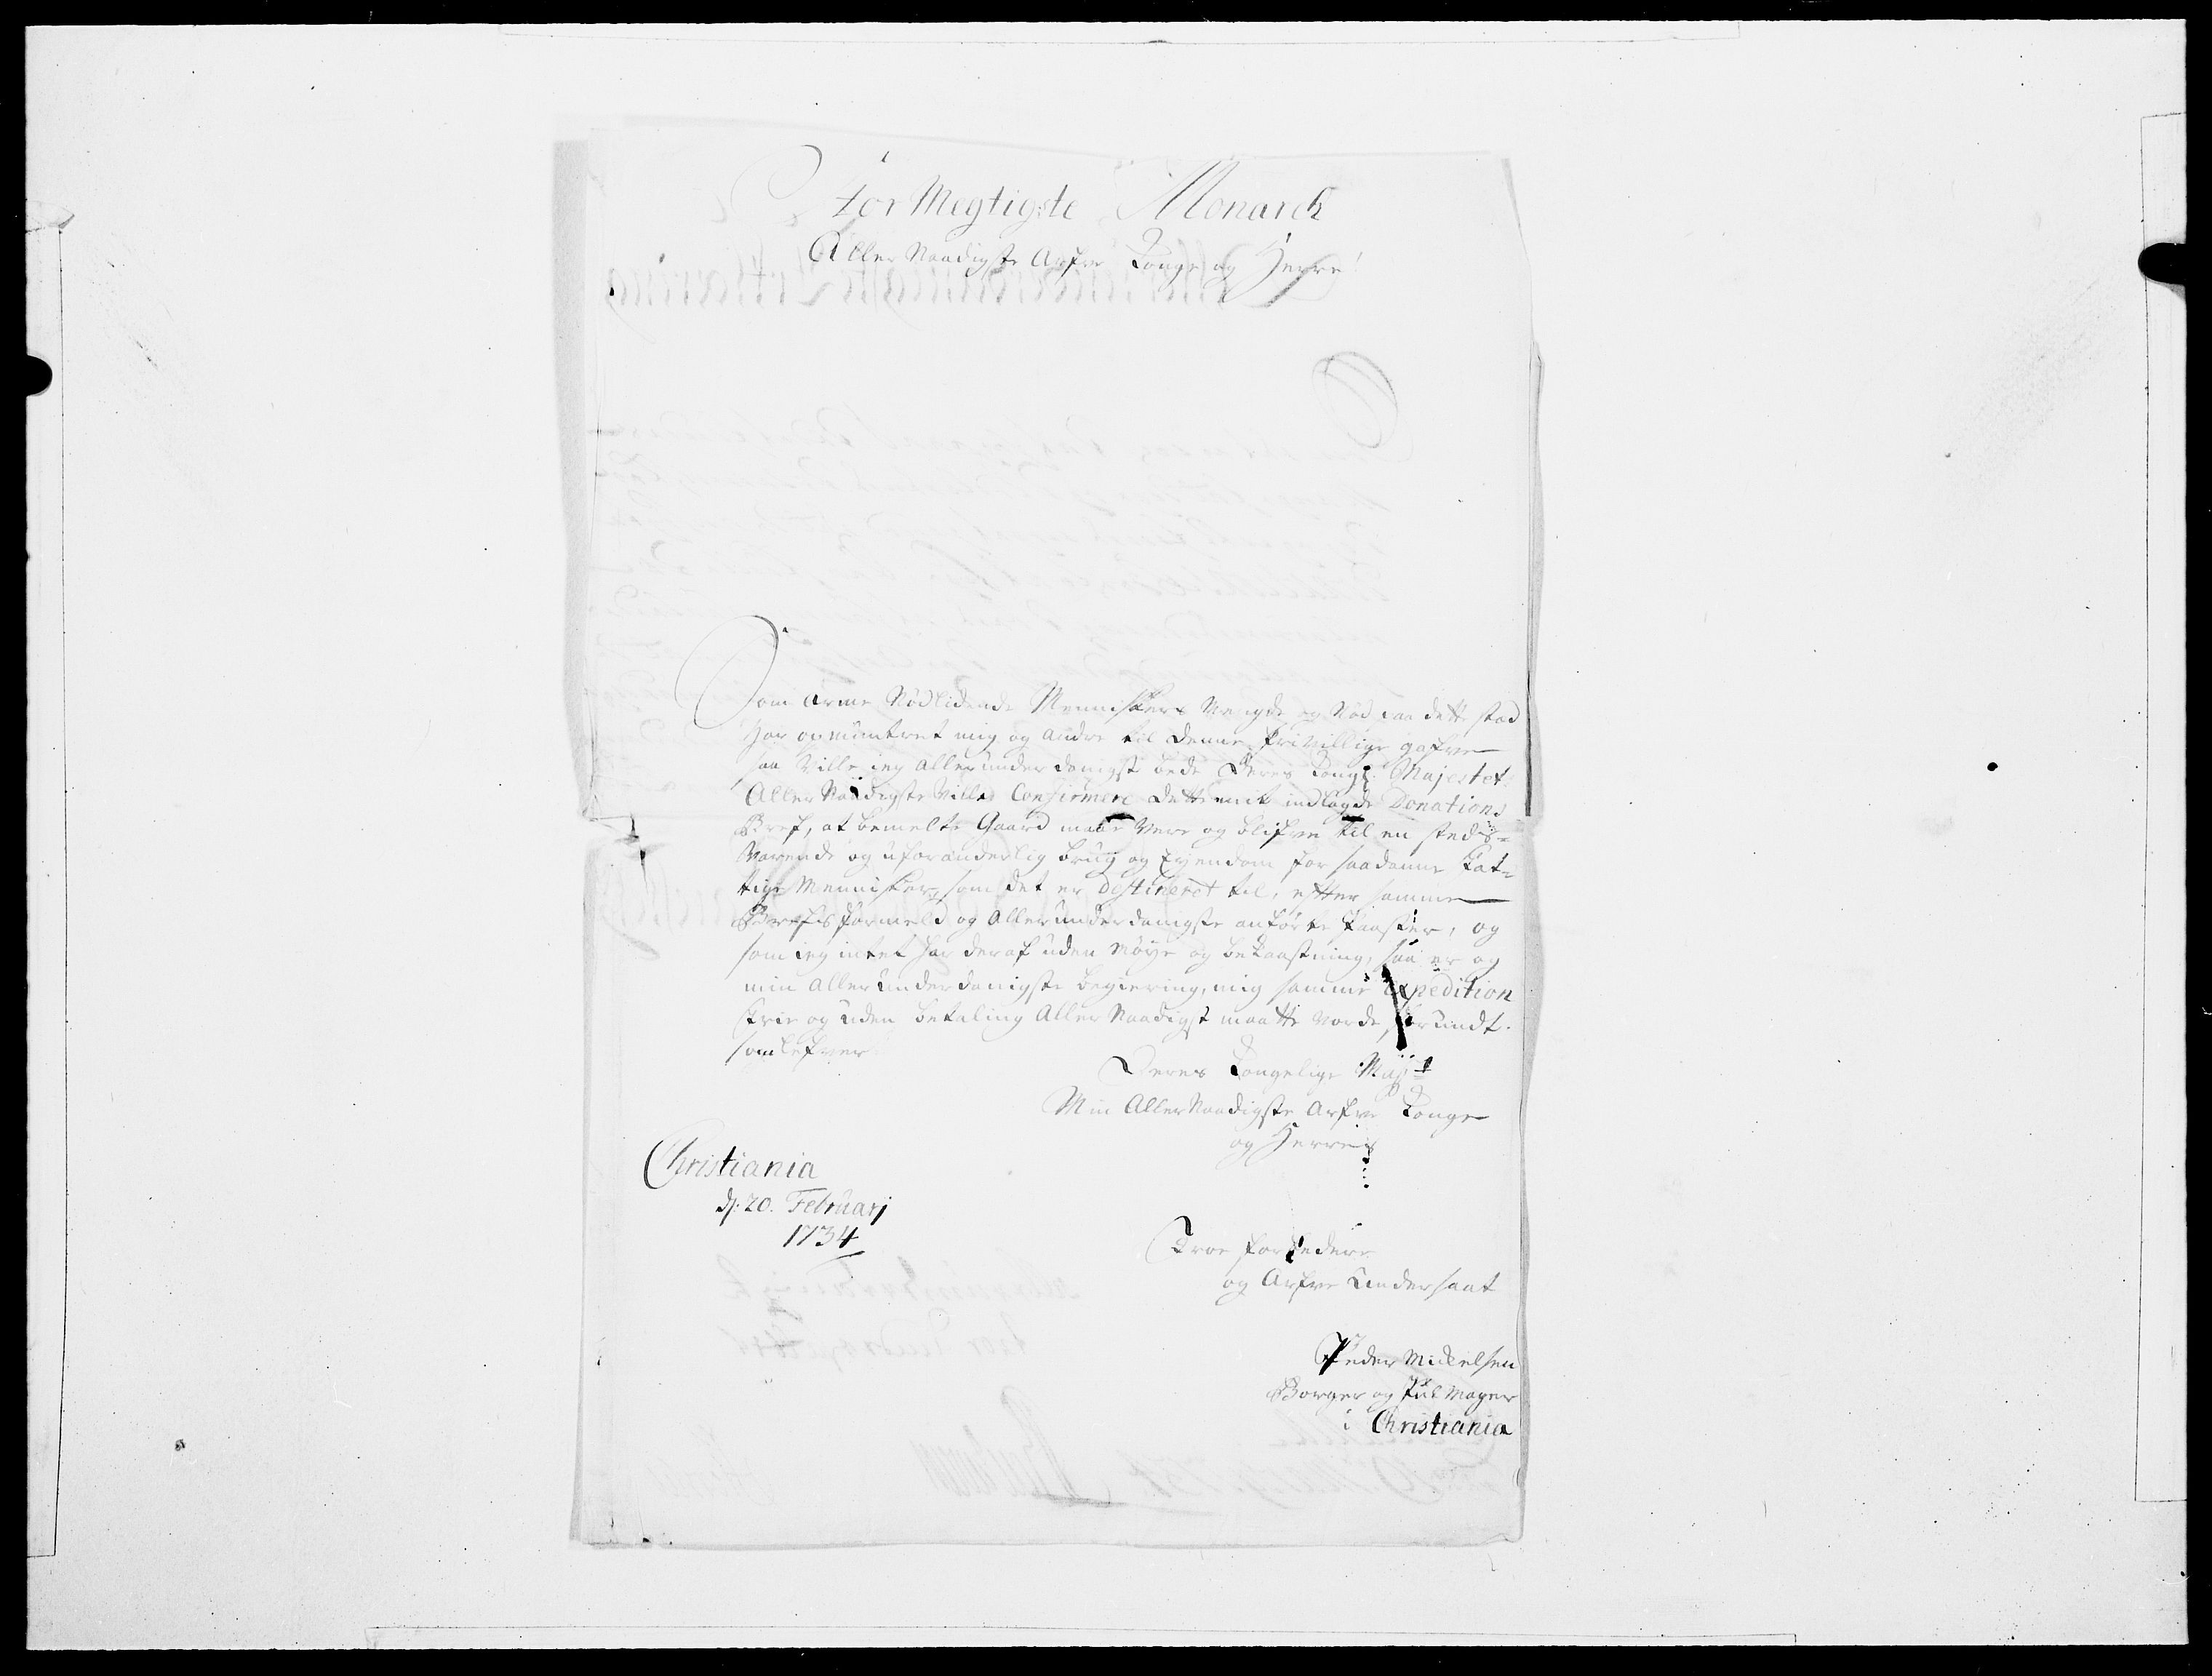 Stor Megtigste Monarch
Aller Naadigste Arfve Konge og Herre!
Som Arme Nødlidende Menniskers Mengde og Nød paa dette stad
har opmuntret mig og andre til denne frivillige gafve
saa Ville ieg allerunderdanigst bede Deres Kongl: Majestet
Aller Naadigste Ville Confirmere dette mit indlagde Donations
Bref, at bemelte Gaard maae Være og blifve til en steds=
Varende og uforanderlig brug og Eyendom for saadanne Fat=
tige Mennisker, som det er destineret til, effter samme
Brefs Formeld og Allerunderdanigste anførte Paaster, og
som ieg intet har deraf uden Møye og bekaastning, saa er og
min allerunderdanigste begiering, mig samme Expedition
frie og uden betaling Aller Naadigst maatte vorde forundt.
som lefver
Deres Kongelige Maj:t
Min Aller Naadigste Arfve Konge
og Herres
Christiania
d: 20. Februarj
1734
Troe forpligtede
og Arfve Undersaat
Peder Mickelsen
Borger og Mager
i Christiania